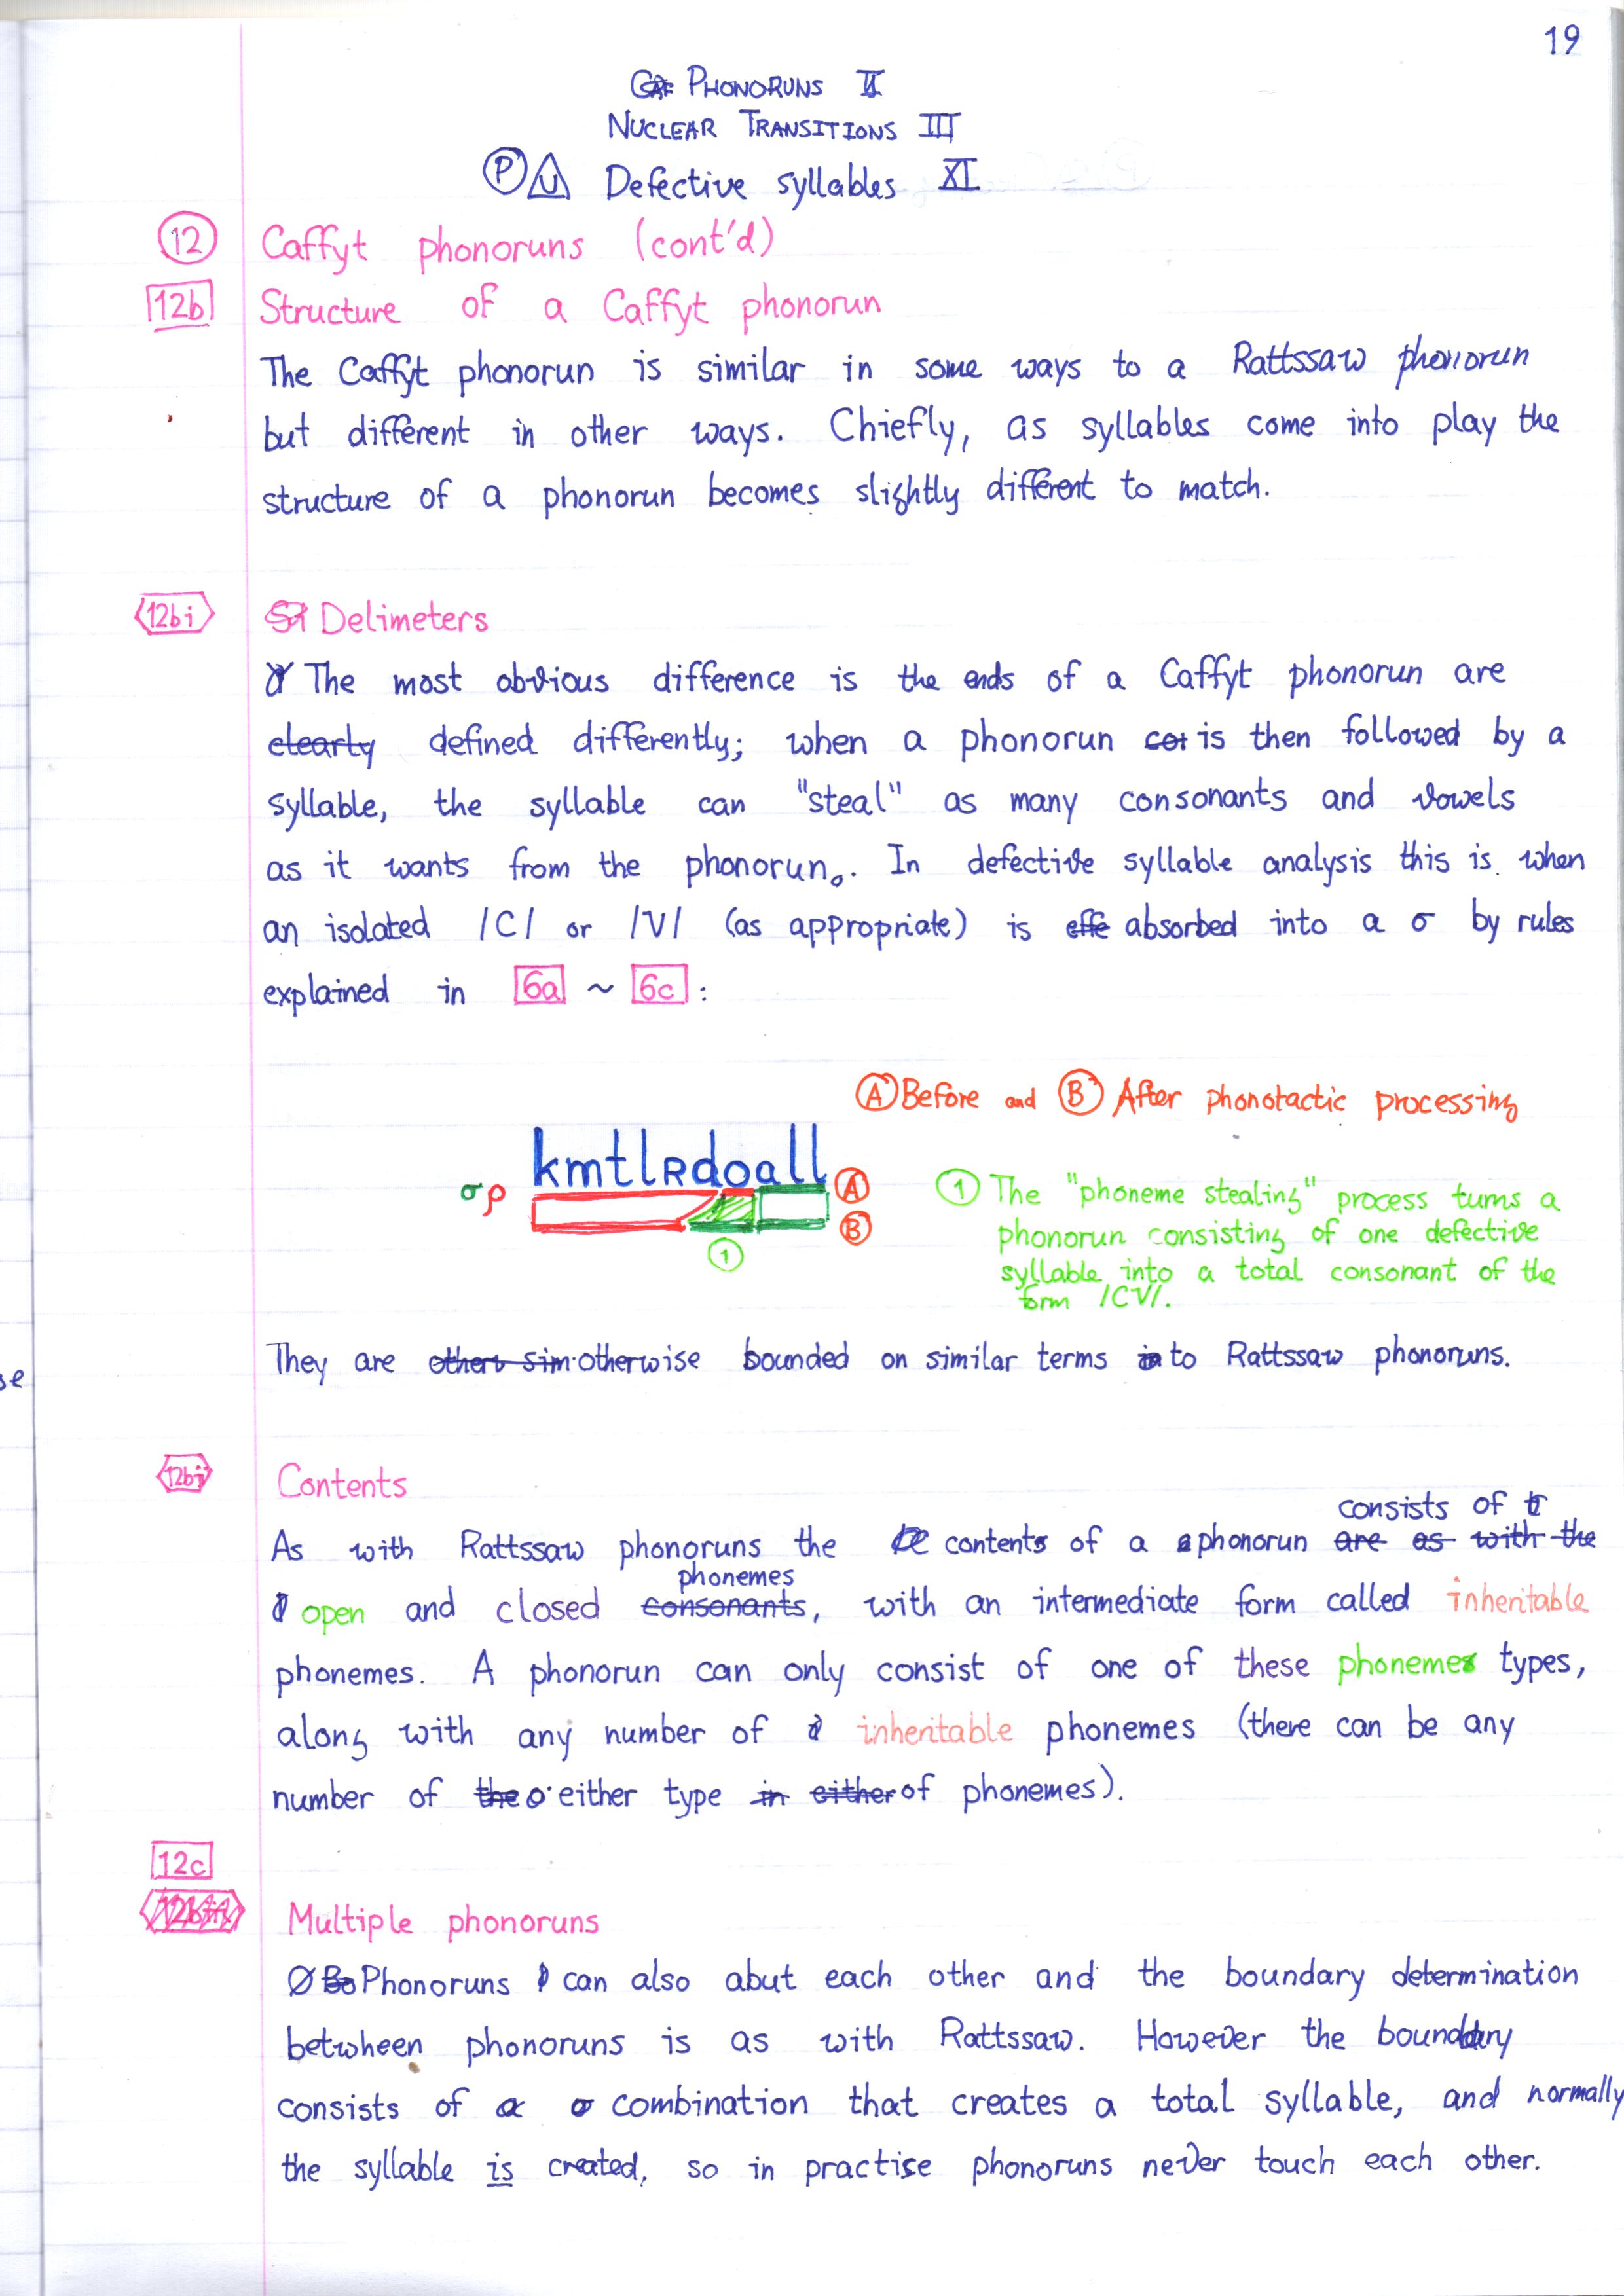 19
PHONORUNS II
NUCLEAR TRANSITIONS III
P U Defective syllables XI
12 Caffyt phonoruns (cont'd)
12b Structure of a Caffyt phonorun
The Caffyt phonorun is similar in some ways to a Rattssaw phonorun
but different in other ways. Chiefly, as syllables come into play the
structure of a phonorun becomes slightly different to match.
12bi Delimeters
The most obvious difference is the ends of a Caffyt phonorun are
clearly defined differently; when a phonorun is then followed by a
syllable, the syllable can "steal" as many consonants and vowels
as it wants from the phonorun. In defective syllable analysis this is when
an isolated /C/ or /V/ (as appropriate) is absorbed into a σ by rules
explained in 6a ~ 6c :
A Before and B After phonotactic processing
kmtlRdoall
σρ A
B
1
1 The "phoneme stealing" process turns a
phonorun consisting of one defective
syllable into a total consonant of the
form /CV/.
They are otherwise bounded on similar terms to Rattssaw phonoruns.
se
12bj Contents
consists of
As with Rattssaw phonoruns the contents of a phonorun are as with the
phonemes
open and closed consonants, with an intermediate form called inheritable
phonemes. A phonorun can only consist of one of these phoneme types,
along with any number of inheritable phonemes (there can be any
number of the either type in either of phonemes).
12c
Multiple phonoruns
Phonoruns can also abut each other and the boundary determination
betwheen phonoruns is as with Rattssaw. However the boundary
consists of a σ combination that creates a total syllable, and normally
the syllable is created, so in practise phonoruns never touch each other.